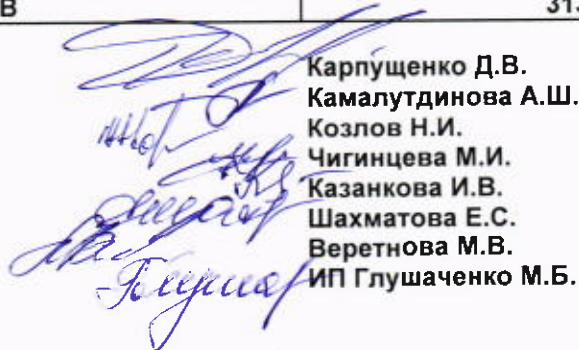 В 313
Карпущенко Д.В.
Камалутдинова А.Ш.
Козлов Н.И.
Чигинцева М.И.
Казанкова И.В.
Шахматова Е.С.
Веретнова М.В.
ИП Глушаченко М.Б.